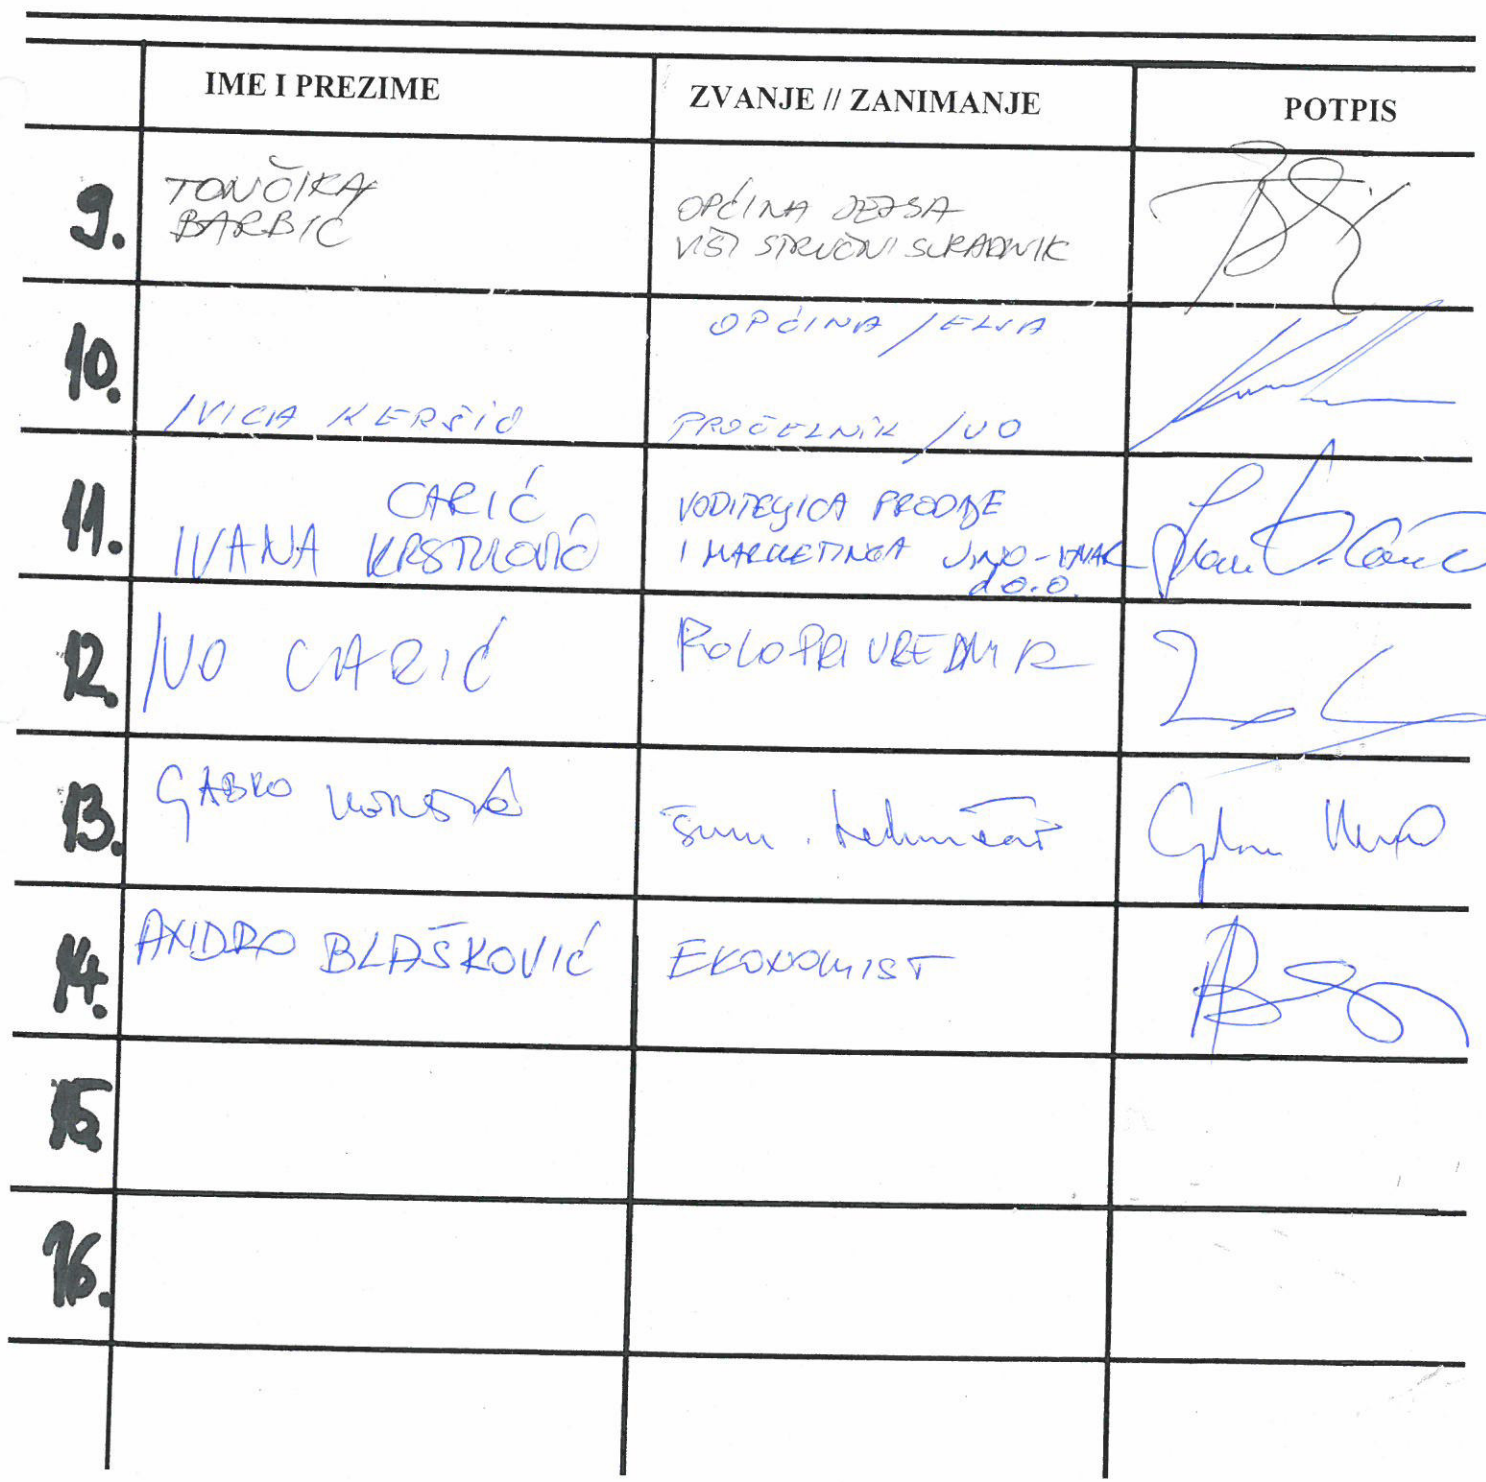 IME I PREZIME ZVANJE // ZANIMANJE POTPIS
9. TONČIKA
BARBIĆ
OPĆINA JELSA
VIŠI STRUČNI SURADNIK
10. IVICA KERŠIĆ
OPĆINA JELSA
PROČELNIK JUO
11. CARIĆ
IVANA KRSTULOVIĆ
VODITELJICA PRODAJE
I MARKETINGA VINO-
d.o.o.
12. IVO CARIĆ
POLOPRIVREDNIK
13. GABRO
Šum. tehničar
14. ANDRO BLAŠKOVIĆ EKONOMIST
15
16.